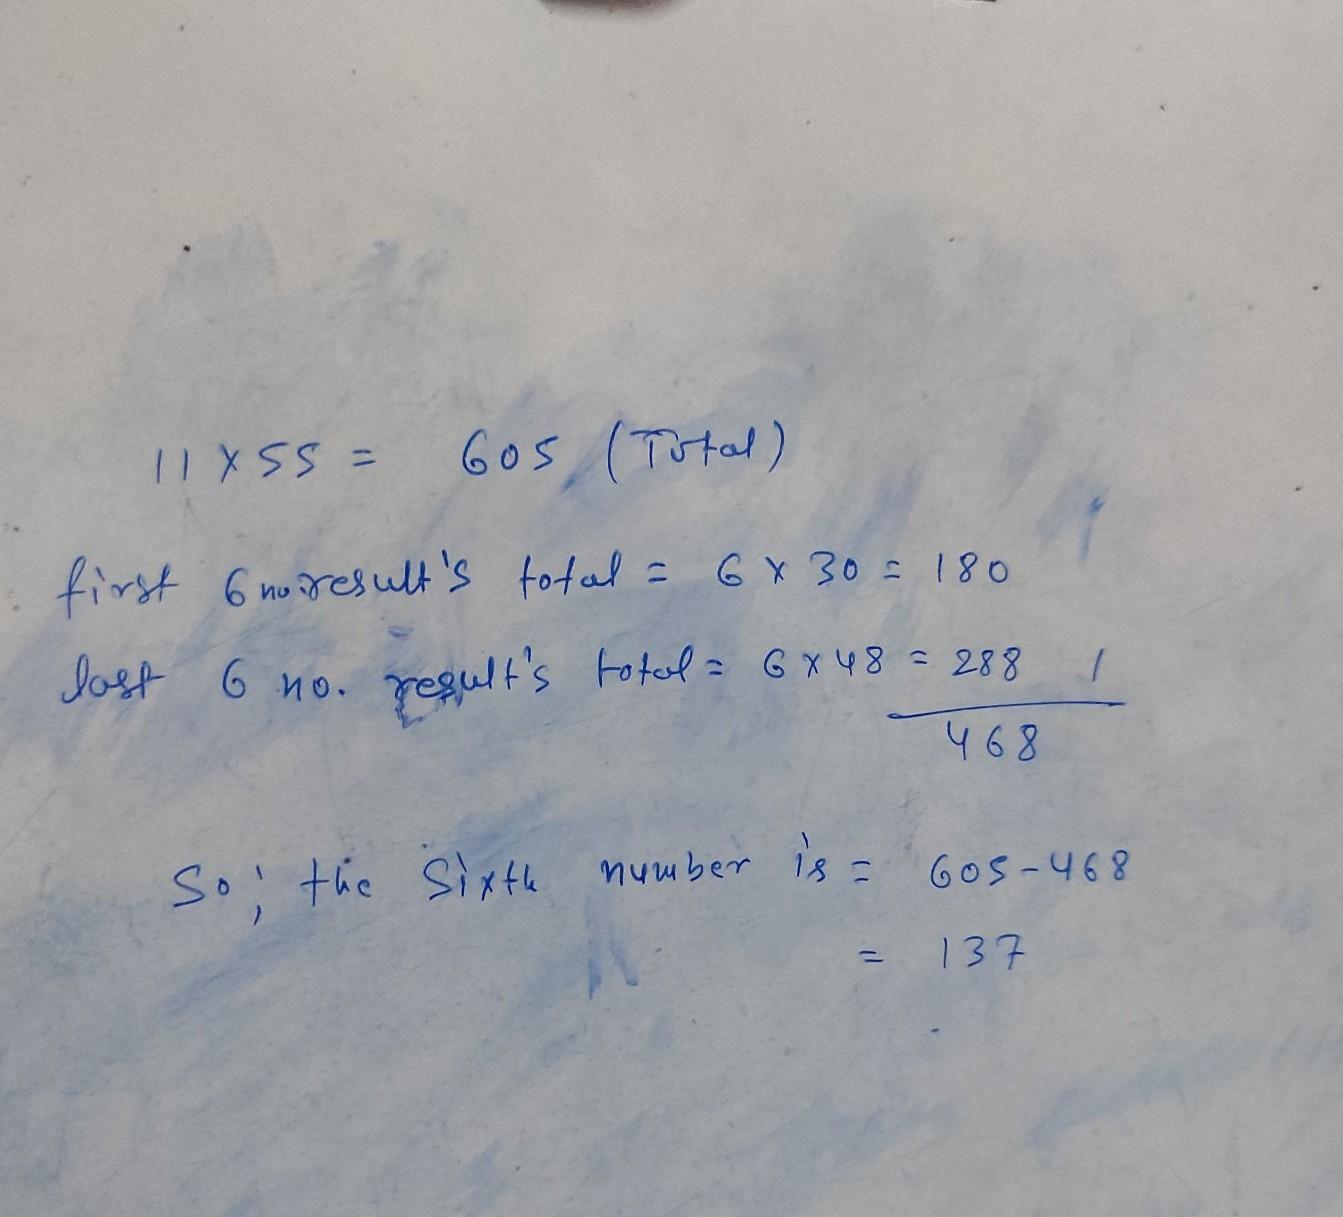 11 x 55 = 605 (Total)
first 6 no. result's total = 6 x 30 = 180
last 6 no. result's total = 6 x 48 = 288
468
So; the Sixth number is = 605-468
= 137